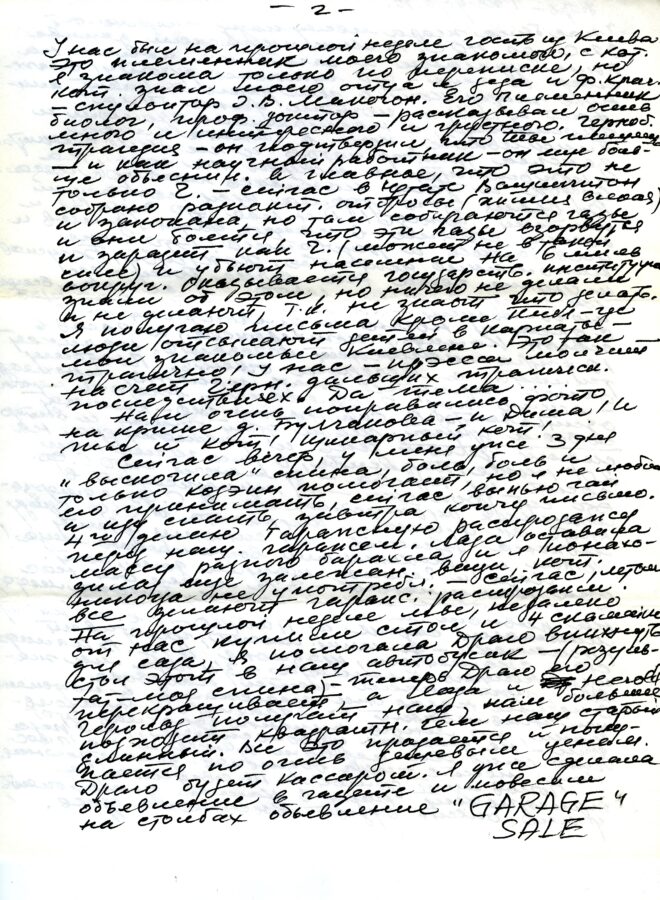 - 2 -
У нас был на прошлой неделе гость из Киева
это племянник моего знакомого, с кот.
я знакома только по переписке, но
кот. знал моего отца и деда и ф. Крач.
— скульптор Э. В. Его племянник
биолог, проф. доктор — рассказывал очень
много и интересного и грустного. Чернобл.
трагедия — он подтвердил, что
— и как научный работник — он еще боль-
ше объяснил. А главное, что это не
только Ч. — сейчас в штате Вашингтон
собрано радиакт. отбросы (химия)
и закопана, но там собираются газы
и они боятся, что эти газы взорвутся
и заразят как Ч. (может не в такой
силе) и убьют население на 6 миль
вокруг. Оказывается государств. институции
знали об этом, но ничего не делали
и не делают, т.к. не знают что делать.
Я получаю письма кроме
люди отсылают детей в Карпаты —
мои знакомые Киевляне. Это так
трагично! У нас — пресса молчит
насчет Черн. дальших трагическ.
последствиех. Да тема...
Нам очень понравились фото
на крыше д. Булгакова — и Дима! и
ты и кот! Шикарный кот!
Сейчас вечер у меня уже 3 дня
"выскочила" спина, боль, боль и
только кодэин помогает, но я не люблю
его принимать, сейчас выпью чай
и иду спать, завтра кончу письмо.
4го делаю гаражную распродажу
перед наш. гаражем. Лада оставила
массу разного барахла, и я понахо-
дила еще залежан. вещи, кот.
никогда не употребл. — сейчас, летом
все делают гаражс. распродажи
На прошлой неделе мы, недалеко
от нас купили стол и 4 скамейки
для сада, я помогала Драго впихнуть
стол этот в наш автобусик — (резуль-
тат — моя спина) — теперь Драго его
перекрашивает, а Лада и
герольд получат наш, нам больше
подходит квадратн. чем наш старый
длинный. Все это продается и поку-
пается по очень дешевым ценам.
Драго будет кассаром. Я уже сделала
объевление в газете и повесим
на столбах объевление "GARAGE"
SALE